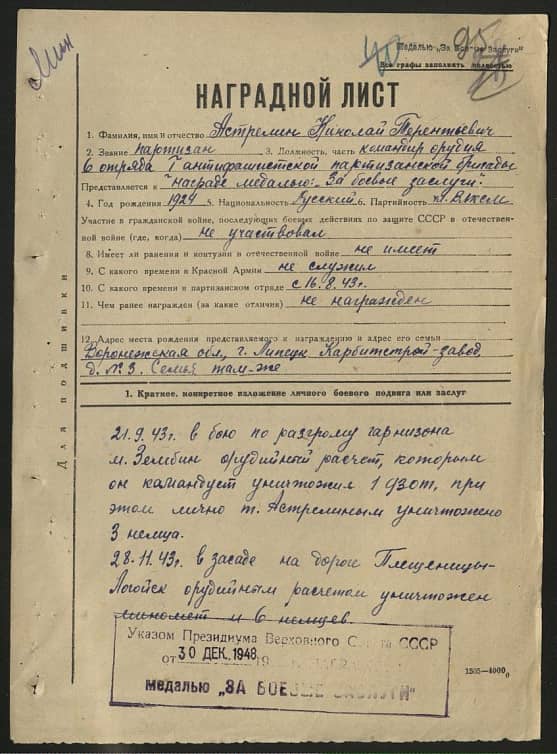 Мин
40
95
Медалью „За Боевые Заслуги"
Все графы заполнять полностью
НАГРАДНОЙ ЛИСТ
1. Фамилия, имя и отчество Астрелин Николай Терентьевич
2. Звание партизан 3. Должность, часть командир орудия
6 отряда 1 антифашистской партизанской бригады
Представляется к "награде медалью: За боевые заслуги".
4. Год рождения 1924 5. Национальность Русский 6. Партийность чл. ВЛКСМ
Участие в гражданской войне, последующих боевых действиях по защите СССР в отечествен-
ной войне (где, когда) не участвовал
8. Имеет ли ранения и контузии в отечественной войне не имеет
9. С какого времени в Красной Армии не служил
10. С какого времени в партизанском отряде с 16.8.43г.
11. Чем ранее награжден (за какие отличия) не награжден
12. Адрес места рождения представляемого к награждению и адрес его семьи
Воронежская обл., г. Липецк Карбитстрой-завод,
д. №3. Семья там-же
Для подшивки
1. Краткое, конкретное изложение личного боевого подвига или заслуг
21.9.43г. в бою по разгрому гарнизона
м. Зембин орудийный расчет, которым
он командует уничтожил 1 дзот, при
этом лично т. Астрелиным уничтожено
3 немца.
28.11.43г. в засаде на дороге Плещеницы-
Логойск орудийным расчетом уничтожен
миномет и 6 немцев.
Указом Президиума Верховного Совета СССР
от 30 ДЕК. 1948 19
медалью „ЗА БОЕВЫЕ ЗАСЛУГИ"
1505—4000